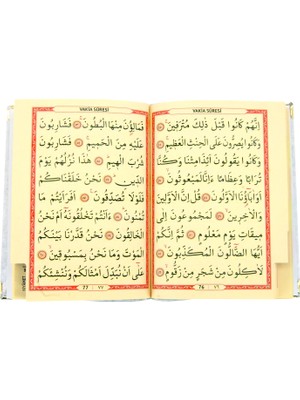 VAKİA SÛRESİ
اِنَّهُمْ كَانُوا قَبْلَ ذٰلِكَ مُتْرَفِينَ
وَكَانُوا يُصِرُّونَ عَلَى الْحِنْثِ الْعَظِيمِ
وَكَانُوا يَقُولُونَ اَئِذَا مِتْنَا وَكُنَّا
تُرَابًا وَعِظَامًا ءَاِنَّا لَمَبْعُوثُونَ
اَوَاٰبَاؤُنَا الْاَوَّلُونَ قُلْ اِنَّ الْاَوَّلِينَ
وَالْاٰخِرِينَ لَمَجْمُوعُونَ اِلٰى
مِيقَاتِ يَوْمٍ مَعْلُومٍ ثُمَّ اِنَّكُمْ
اَيُّهَا الضَّالُّونَ الْمُكَذِّبُونَ
لَاٰكِلُونَ مِنْ شَجَرٍ مِنْ زَقُّومٍ
76 ٧٦
VAKİA SÛRESİ
فَمَالِؤُنَ مِنْهَا الْبُطُونَ فَشَارِبُونَ
عَلَيْهِ مِنَ الْحَمِيمِ فَشَارِبُونَ
شُرْبَ الْهِيمِ هٰذَا نُزُلُهُمْ يَوْمَ
الدِّينِ نَحْنُ خَلَقْنَاكُمْ
فَلَوْلَا تُصَدِّقُونَ اَفَرَاَيْتُمْ مَا
تُمْنُونَ ءَاَنْتُمْ تَخْلُقُونَهُ اَمْ نَحْنُ
الْخَالِقُونَ نَحْنُ قَدَّرْنَا بَيْنَكُمُ
الْمَوْتَ وَمَا نَحْنُ بِمَسْبُوقِينَ
عَلٰى اَنْ نُبَدِّلَ اَمْثَالَكُمْ وَنُنْشِئَكُمْ
77 ٧٧